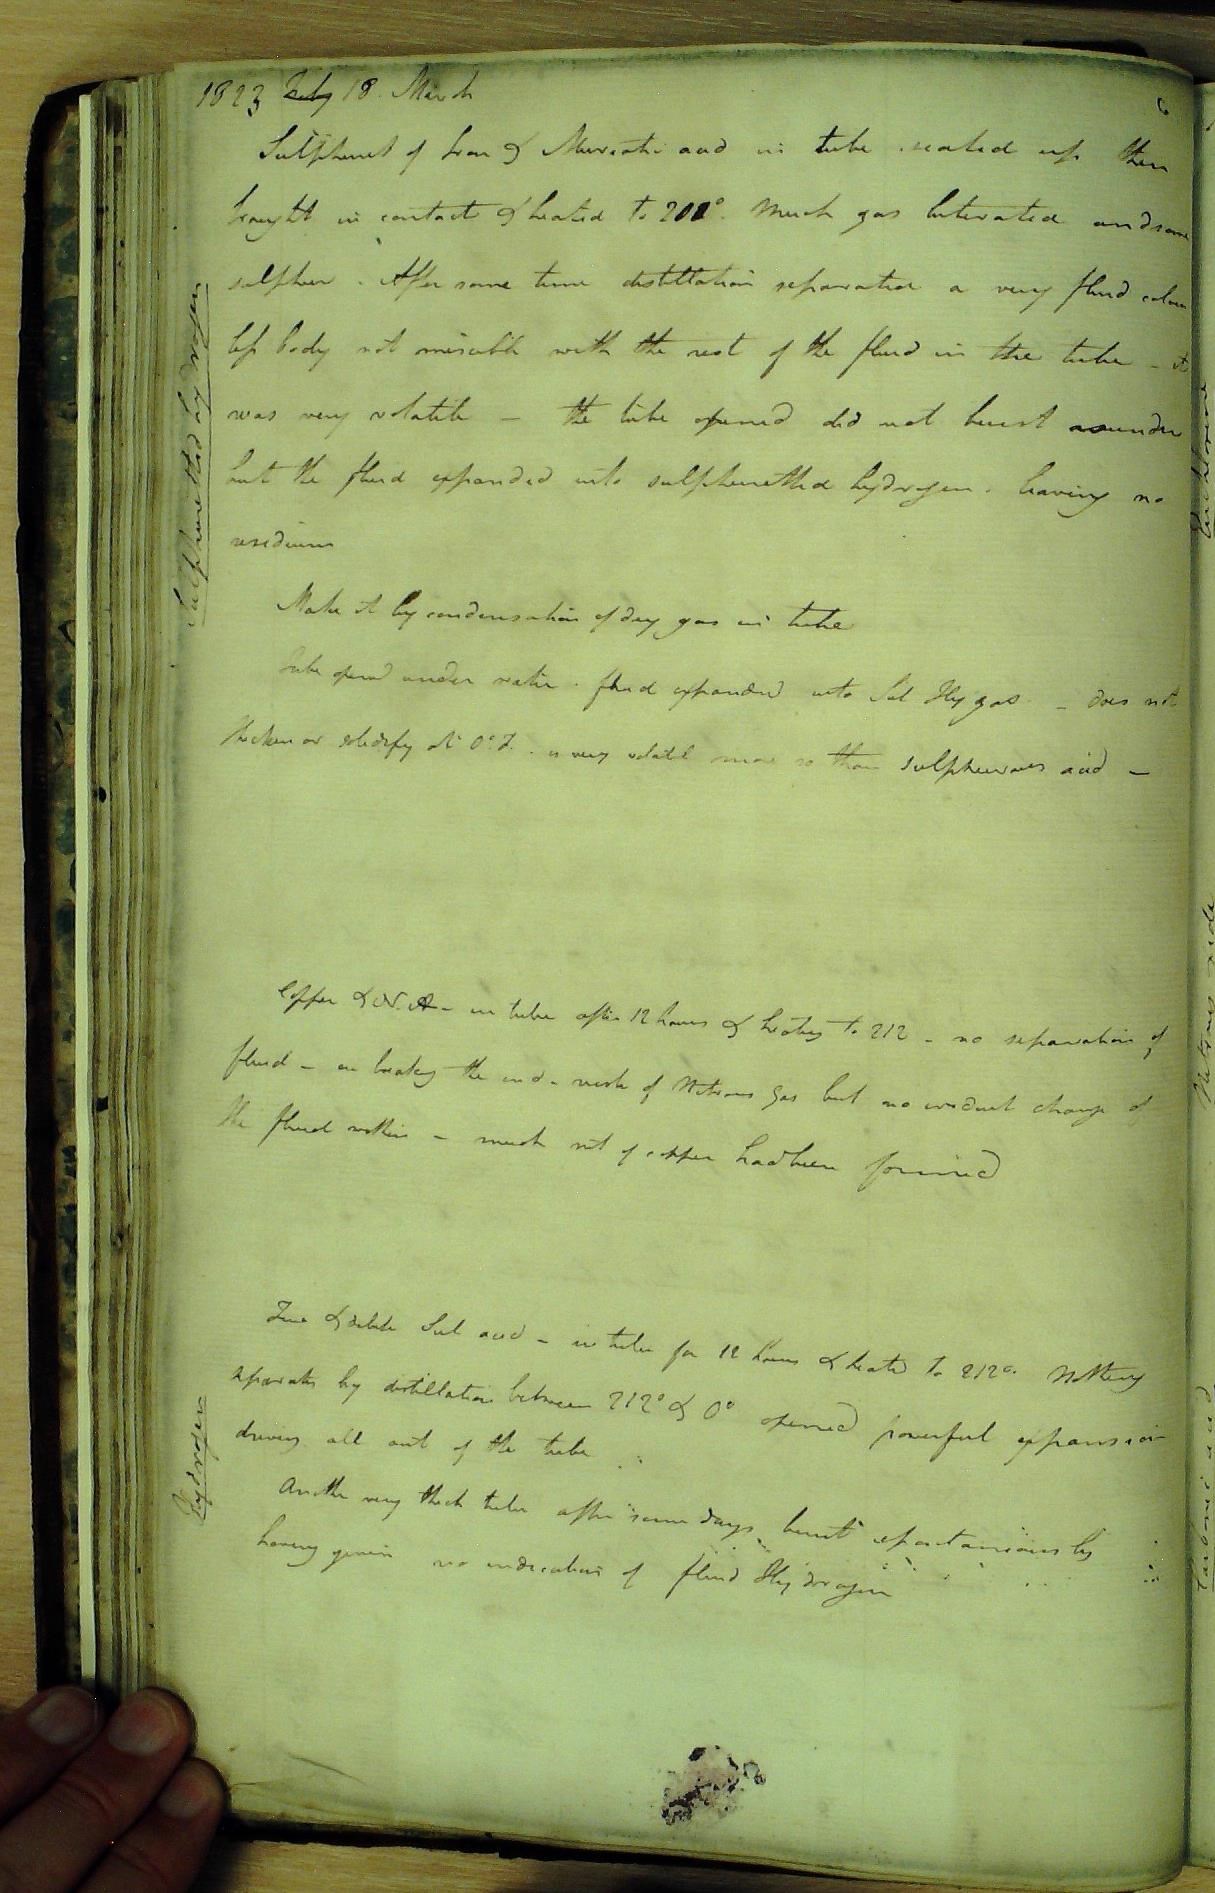 1823 Feby 18. March
6
Sulphuret of Iron & Muriatic acid in tube sealed up then
brought in contact & heated to 202°. Much gas liberated and some
sulphur. After some time distillation separated a very fluid colour
less body not miscible with the rest of the fluid in the tube - it
was very volatile - the tube opened did not burst asunder
but the fluid expanded into sulphuretted hydrogen. leaving no
residuum
Make it by condensation of dry gas in tube
tube opened under water. fluid expanded into Sul Hy gas. - does not
thicken or solidify at 0° F. is very volatile more so than sulphurous acid -
Copper & N. A - in tube after 12 hours & heating to 212 - no separation of
fluid - on breaking the end - of Nitrous gas but no change of
the fluid within - much nit of copper had been formed
Zinc & dilute Sul acid - in tube for 12 hours & heated to 212°. Nothing
separates by distillation between 212° & 0° opened powerful expansion
driving all out of the tube
Another very thick tube after some days burst spontaneously
having given no indication of fluid Hydrogen
Sulphuretted hydrogen
Hydrogen
Nitrous oxide
Carbonic acid